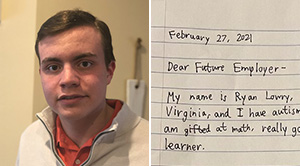 February 27, 2021
Dear Future Employer-
My name is Ryan Lowry,
Virginia, and I have autism
am gifted at math, really go
learner.